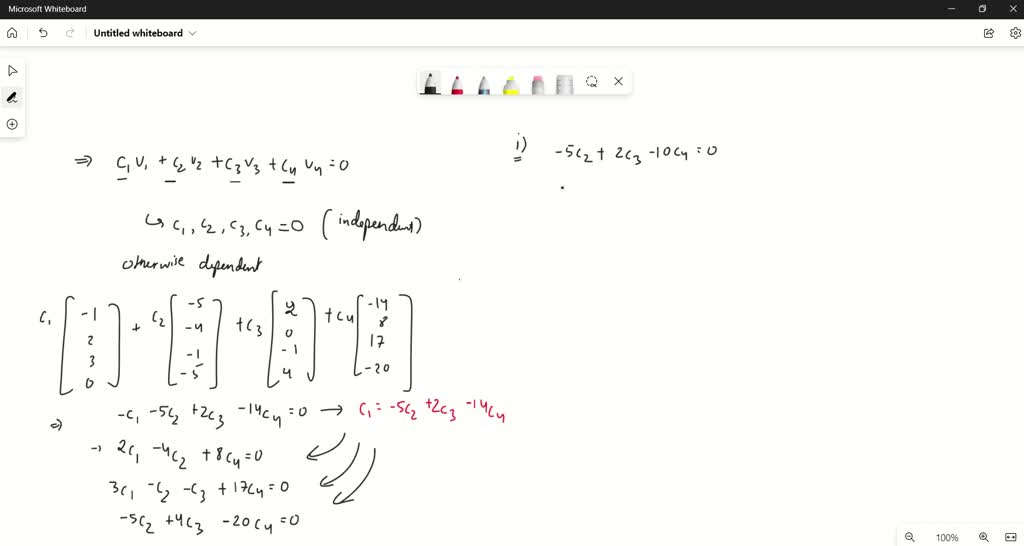 Microsoft Whiteboard
Untitled whiteboard
⇒ c₁v₁ + c₂v₂ + c₃v₃ + c₄v₄ = 0
↳ c₁, c₂, c₃, c₄ = 0 (independent)
otherwise dependent
c₁ [-1 2 3 0] + c₂ [-5 -4 -1 -5] + c₃ [2 0 -1 4] + c₄ [-14 8 17 -20]
⇒ -c₁ -5c₂ +2c₃ -14c₄ = 0 → c₁ = -5c₂ +2c₃ -14c₄
→ 2c₁ -4c₂ +8c₄ = 0
3c₁ -c₂ -c₃ +17c₄ = 0
-5c₂ +4c₃ -20c₄ = 0
i) -5c₂ + 2c₃ -10c₄ = 0
100%